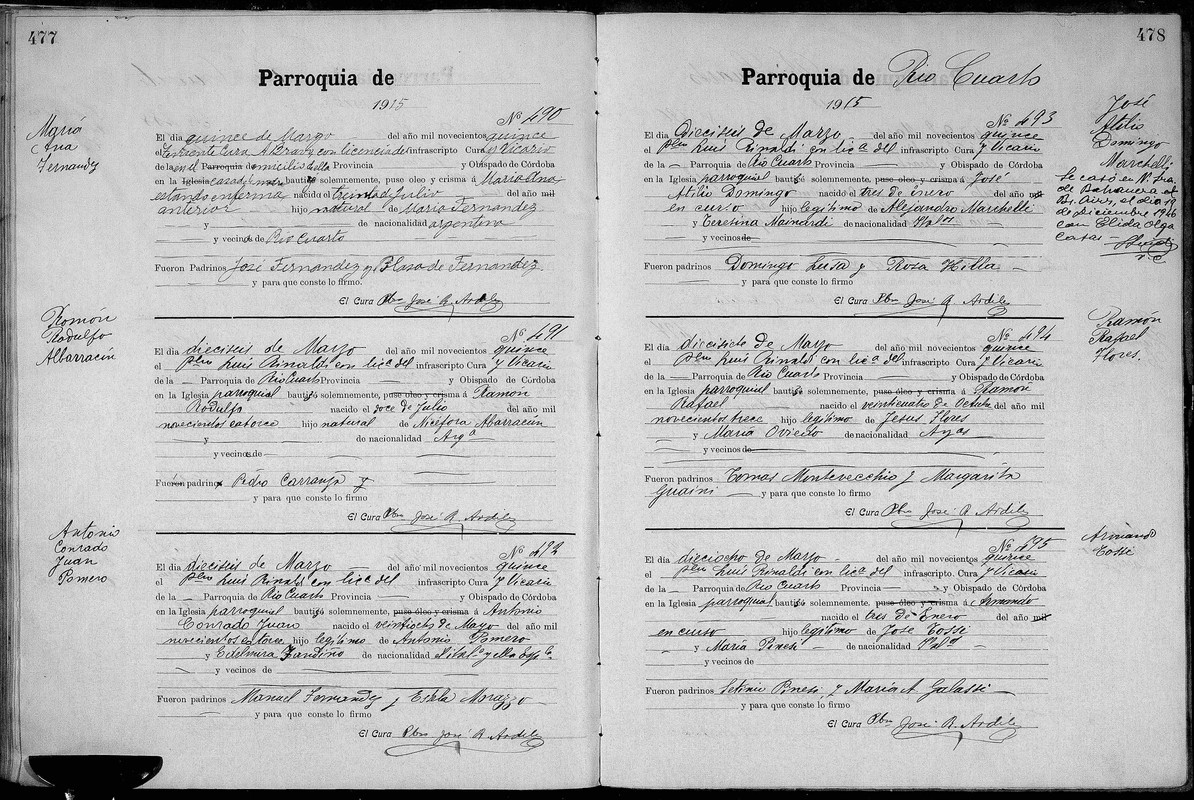 477
Parroquia de
1915
María
Ana
Fernandez
Nº 490
El día quince de Marzo del año mil novecientos quince
el Teniente Cura con licencia del infrascripto Cura y Vicario
de la en el Parroquia domicilio de la Provincia y Obispado de Córdoba
en la Iglesia bautizó solemnemente, puso óleo y crisma á María Ana
estando enferma nacido el treinta de Julio del año mil
anterior hijo natural de María Fernandez
y de nacionalidad argentina
y vecinos de Rio Cuarto
Fueron Padrinos José Fernandez y Blasa de Fernandez
y para que conste lo firmo.
El Cura Pbro José A. Ardiles
Román
Rodulfo
Albarracín
Nº 491
El día dieciseis de Marzo del año mil novecientos quince
el Pbro Luis Rinaldi con lica del infrascripto Cura y Vicario
de la Parroquia de Rio Cuarto Provincia y Obispado de Córdoba
en la Iglesia parroquial bautizó solemnemente, puso óleo y crisma á Ramon
Rodulfo nacido el doce de Julio del año mil
novecientos catorce hijo natural de Nicefora Albarracin
y de nacionalidad Arga
y vecinos de
Fueron padrinos Pedro Carranza y
y para que conste lo firmo
El Cura Pbro José A. Ardiles
Antonio
Conrado
Juan
Pomero
Nº 492
El día dieciseis de Marzo del año mil novecientos quince
el Pbro Luis Rinaldi con lica del infrascripto Cura y Vicario
de la Parroquia de Rio Cuarto Provincia y Obispado de Córdoba
en la Iglesia parroquial bautizó solemnemente, puso óleo y crisma á Antonio
Conrado Juan nacido el veintiocho de Mayo del año mil
novecientos catorce hijo legítimo de Antonio Pomero
y Edelmira Fandiño de nacionalidad el ital.º y ella Espla
y vecinos de
Fueron padrinos Manuel Fernandez y
y para que conste lo firmo
El Cura Pbro José A. Ardiles
478
Parroquia de Rio Cuarto
1915
Nº 493
El día Dieciseis de Marzo del año mil novecientos quince
el Pbro Luis Rinaldi con lica del infrascripto Cura y Vicario
de la Parroquia de Rio Cuarto Provincia y Obispado de Córdoba
en la Iglesia parroquial bautizó solemnemente, puso óleo y crisma á José
Atilio Domingo nacido el tres de enero del año mil
en curso hijo legítimo de Alejandro Marchelli
y Teresina Mainardi de nacionalidad
y vecinos de
Fueron padrinos Domingo y Rosa Villa
y para que conste lo firmo
El Cura Pbro José A. Ardiles
José
Atilio
Domingo
Marchelli
Se casó en N. Sra.
de Balvanera el
Bs. Aires, el día 19
de diciembre 1946
con Elida Olga
Costas
Nº 494
El día diecisiete de Marzo del año mil novecientos quince
el Pbro Luis Rinaldi con lica del infrascripto Cura y Vicario
de la Parroquia de Rio Cuarto Provincia y Obispado de Córdoba
en la Iglesia parroquial bautizó solemnemente, puso óleo y crisma á Ramón
Rafael nacido el veinticuatro de Octubre del año mil
novecientos trece hijo legítimo de Jesus Flores
y María Oviedo de nacionalidad Args
y vecinos de
Fueron padrinos Tomas Montevecchio y Margarita
Guaini y para que conste lo firmo
El Cura Pbro José A. Ardiles
Ramón
Rafael
Flores.
Nº 495
El día dieciocho de Marzo del año mil novecientos quince
el Pbro Luis Rinaldi con lica del infrascripto Cura y Vicario
de la Parroquia de Rio Cuarto Provincia y Obispado de Córdoba
en la Iglesia parroquial bautizó solemnemente, puso óleo y crisma á Armando
nacido el tres de Enero del año mil
en curso hijo legítimo de José Tossi
y María Pinesi de nacionalidad
y vecinos de
Fueron padrinos Setimio Pinesi, y María A Galassi
y para que conste lo firmo
El Cura Pbro José A. Ardiles
Armando
Tossi